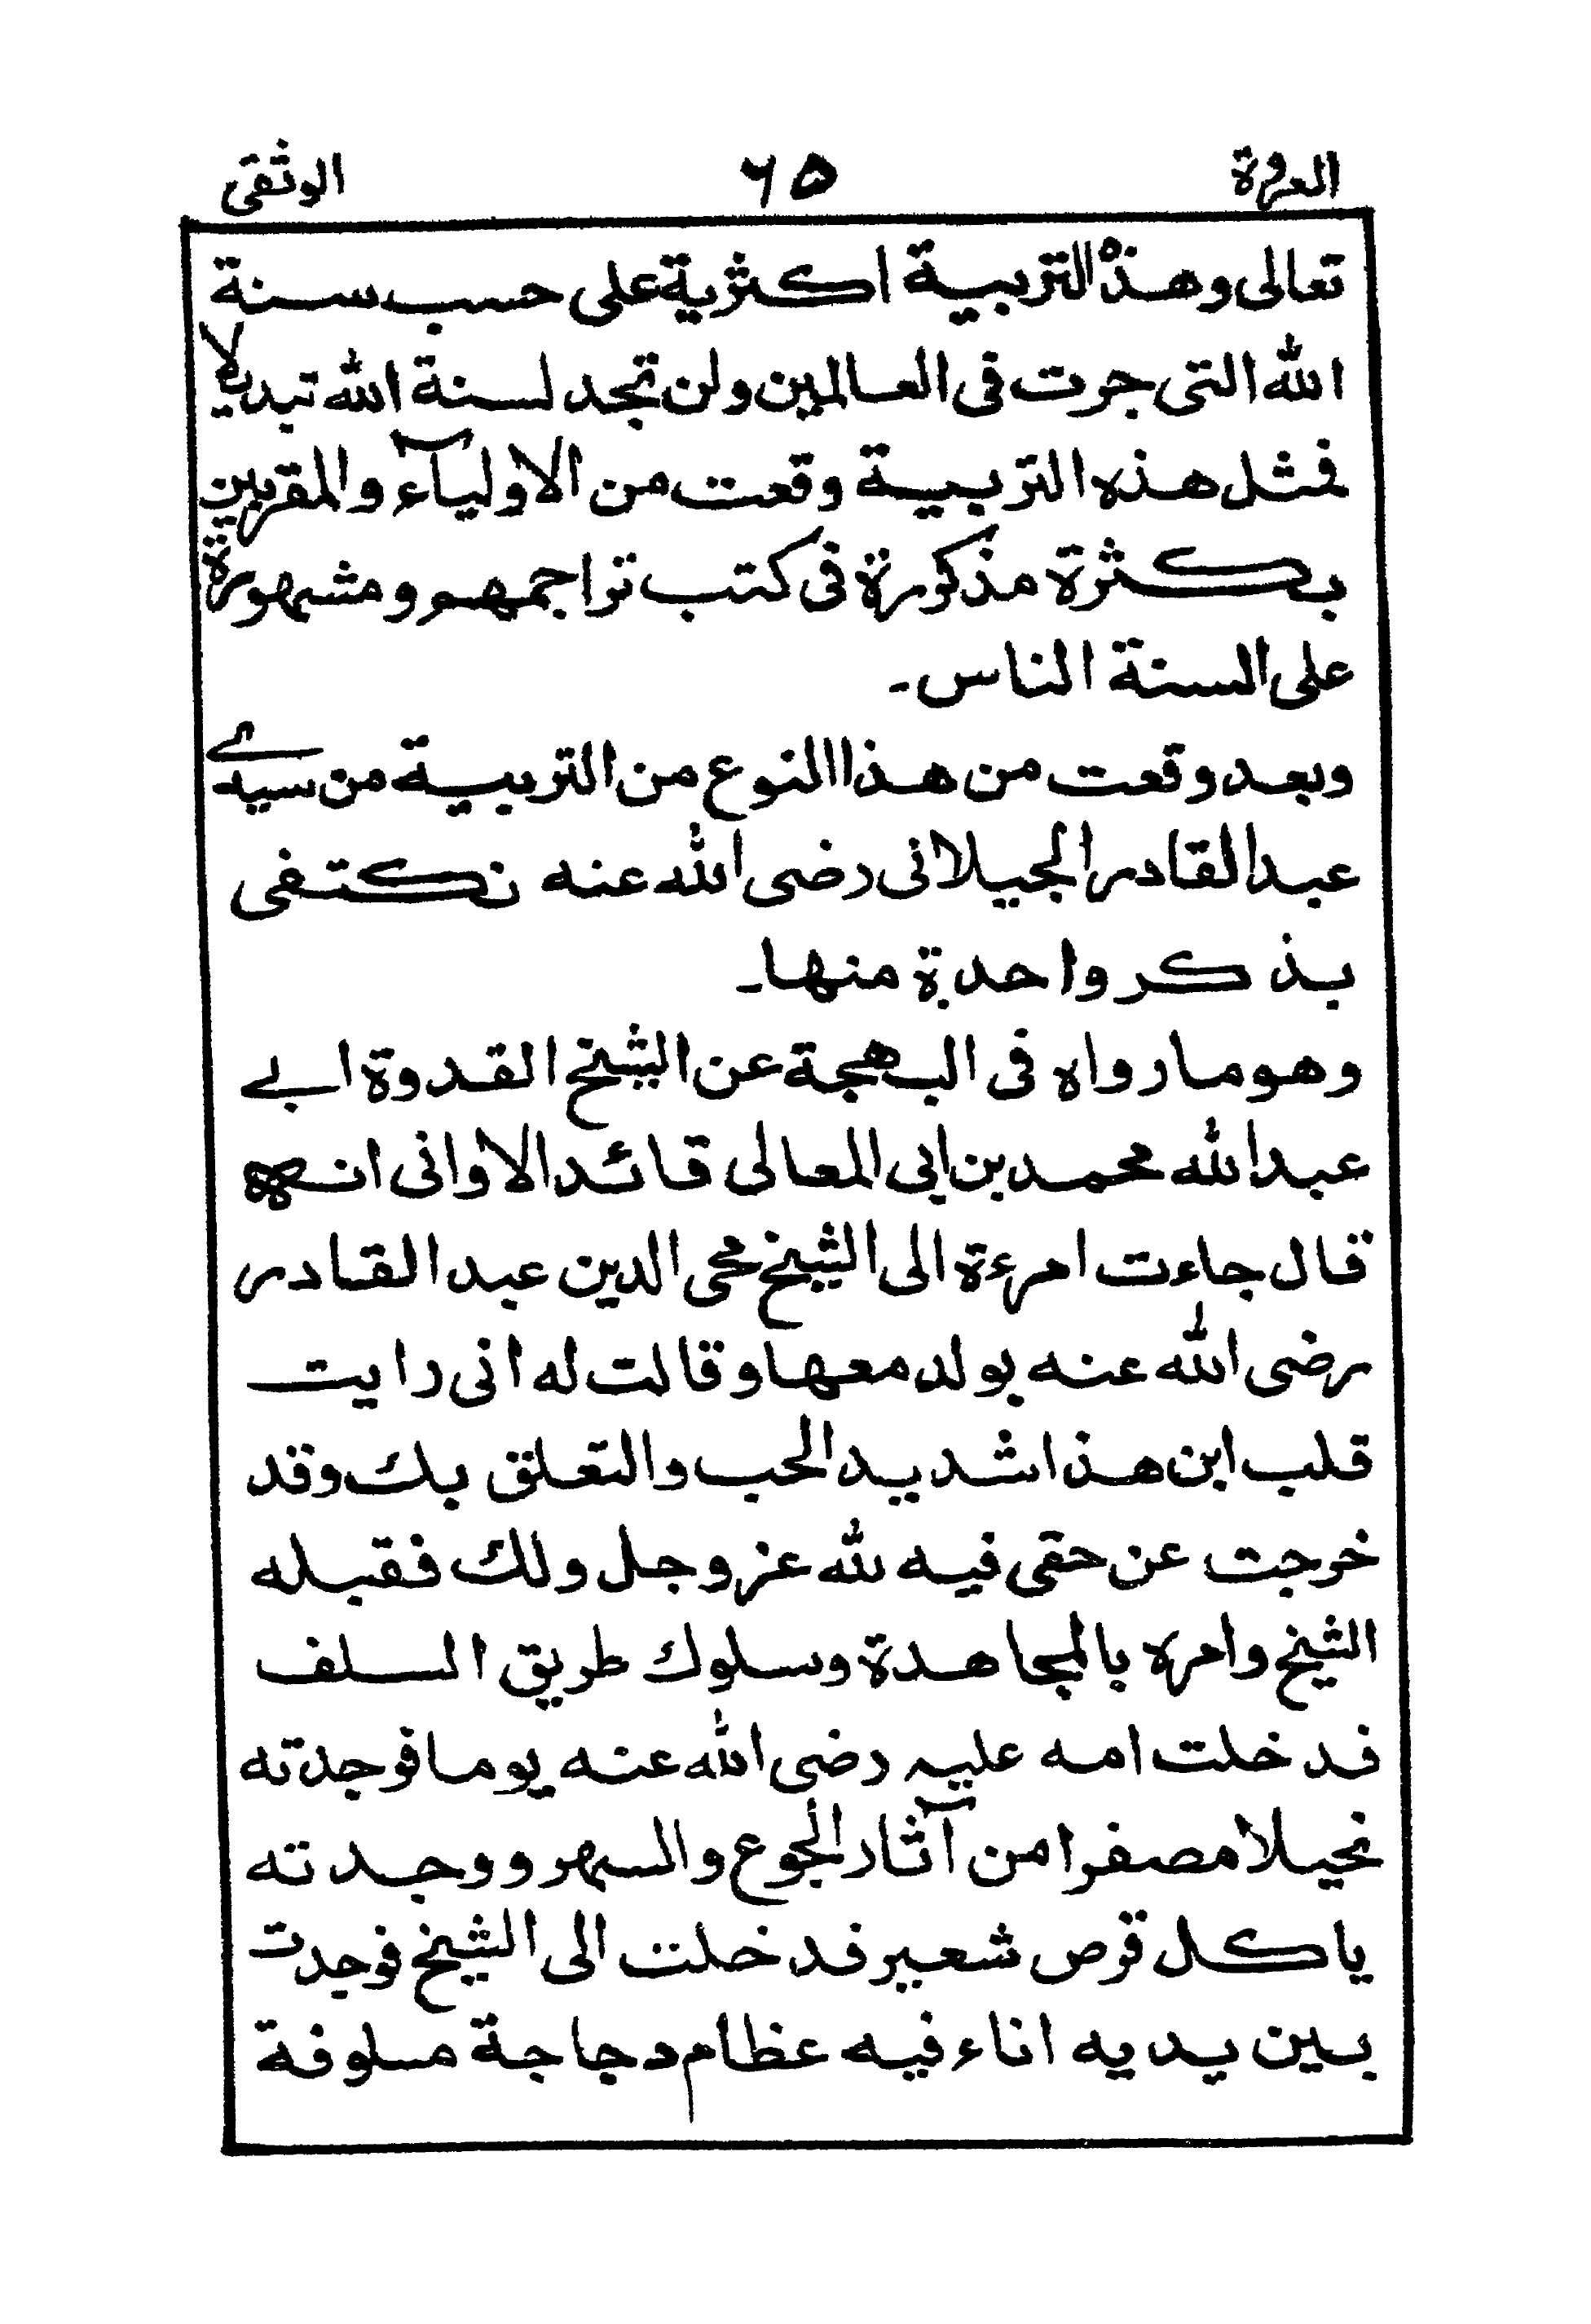 العروة ٦٥ الوثقى
تعالى وهذه التربية اكثرية على حسب سنة
الله التى جرت فى العالمين ولن تجد لسنة الله تبديلا
فمثل هذه التربية وقعت من الاوليآء والمقربين
بكثرة مذكورة فى كتب تراجمهم ومشهورة
على السنة الناس۔
وبعد وقعت من هذا النوع من التربية من سيدے
عبد القادر الجيلانى رضى الله عنه نكتفى
بذكر واحدة منها۔
وهو ما رواه فى البهجة عن الشيخ القدوة ابے
عبد الله محمد بن ابى المعالى قائد الاوانى انه
قال جاءت امرءة الى الشيخ محى الدين عبد القادر
رضى الله عنه بولد معها وقالت له انى رايت
قلب ابن هذا شديد الحب والتعلق بك وقد
خرجت عن حقى فيه لله عز وجل ولك فقبله
الشيخ وامره بالمجاهدة وسلوك طريق السلف
فدخلت امه عليه رضى الله عنه يوما فوجدته
نحيلا مصفرا من آثار الجوع والسهر ووجدته
ياكل قرص شعير فدخلت الى الشيخ فوجدت
بين يديه اناء فيه عظام دجاجة مسلوفة